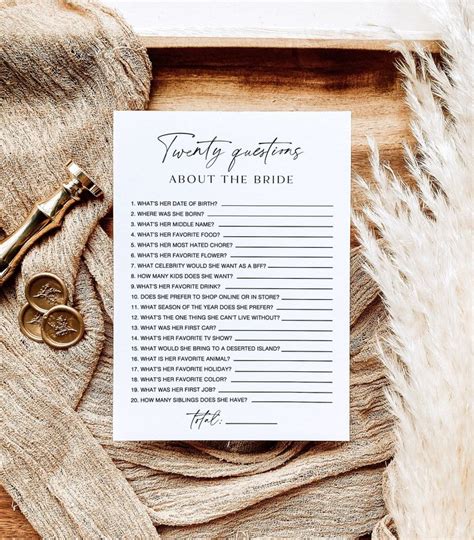 Twenty questions
ABOUT THE BRIDE
1. WHAT'S HER DATE OF BIRTH?
2. WHERE WAS SHE BORN?
3. WHAT'S HER MIDDLE NAME?
4. WHAT'S HER FAVORITE FOOD?
5. WHAT'S HER MOST HATED CHORE?
6. WHAT'S HER FAVORITE FLOWER?
7. WHAT CELEBRITY WOULD SHE WANT AS A BFF?
8. HOW MANY KIDS DOES SHE WANT?
9. WHAT'S HER FAVORITE DRINK?
10. DOES SHE PREFER TO SHOP ONLINE OR IN STORE?
11. WHAT SEASON OF THE YEAR DOES SHE PREFER?
12. WHAT'S THE ONE THING SHE CAN'T LIVE WITHOUT?
13. WHAT WAS HER FIRST CAR?
14. WHAT'S HER FAVORITE TV SHOW?
15. WHAT WOULD SHE BRING TO A DESERTED ISLAND?
16. WHAT IS HER FAVORITE ANIMAL?
17. WHAT'S HER FAVORITE HOLIDAY?
18. WHAT'S HER FAVORITE COLOR?
19. WHAT WAS HER FIRST JOB?
20. HOW MANY SIBLINGS DOES SHE HAVE?
Total: